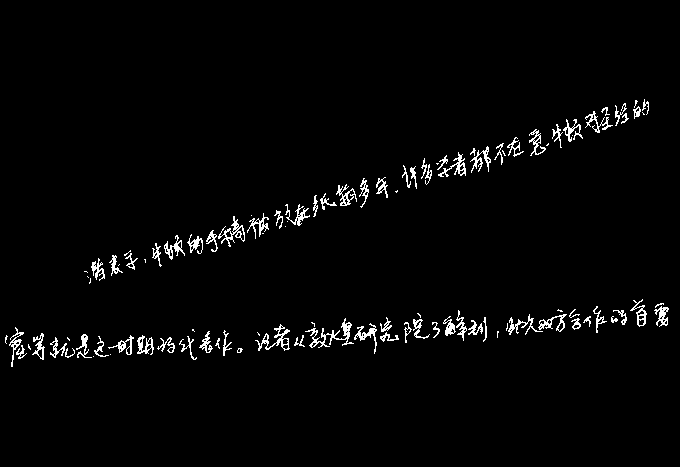 潜表示,牛顿的手稿被放在纸箱多年,许多学者都不在意牛顿对圣经的
窟等就是这一时期的代表作。记者从敦煌研究院了解到,此次双方合作的首要